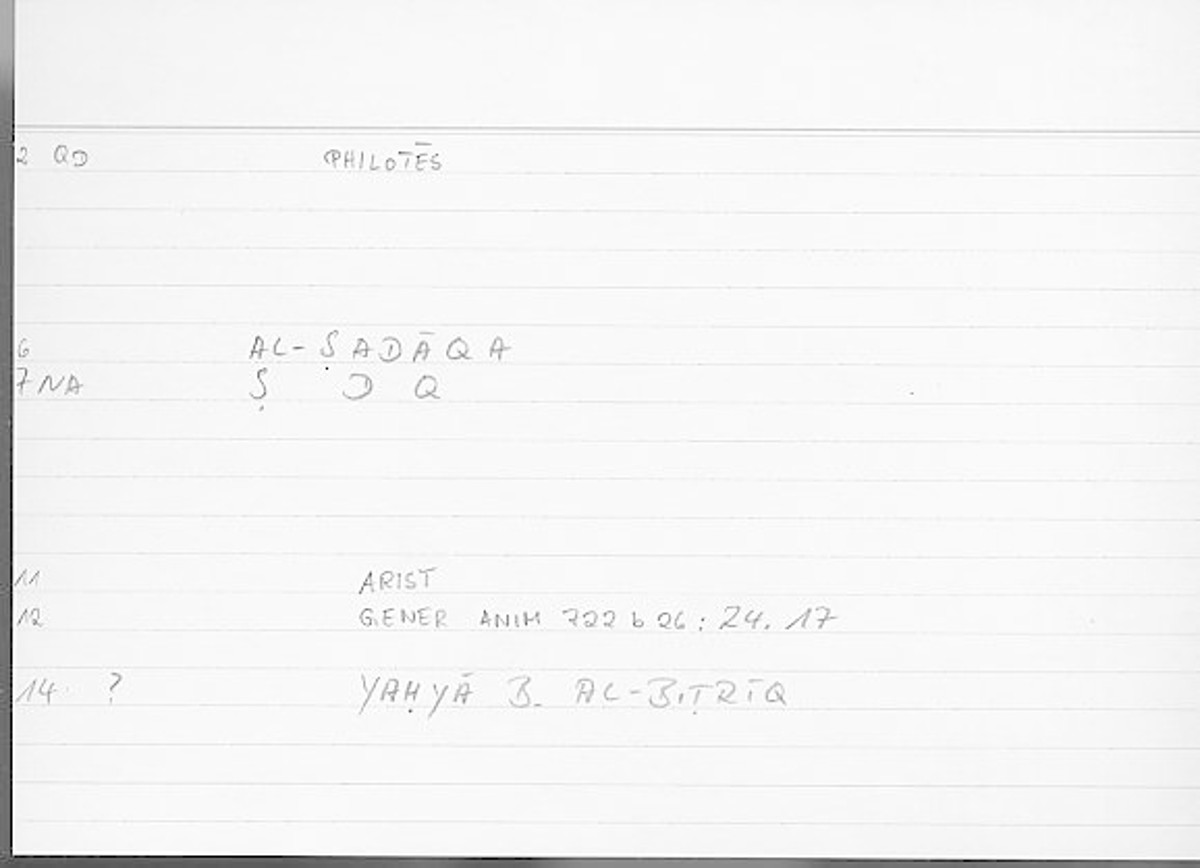 2 QD PHILOTĒS
6 AL-ṢADĀQA
7 NA Ṣ D Q
11 ARIST
12 GENER ANIM 722 b 26 : 24. 17
14 ? YAḤYĀ B. AL-BIṬRĪQ